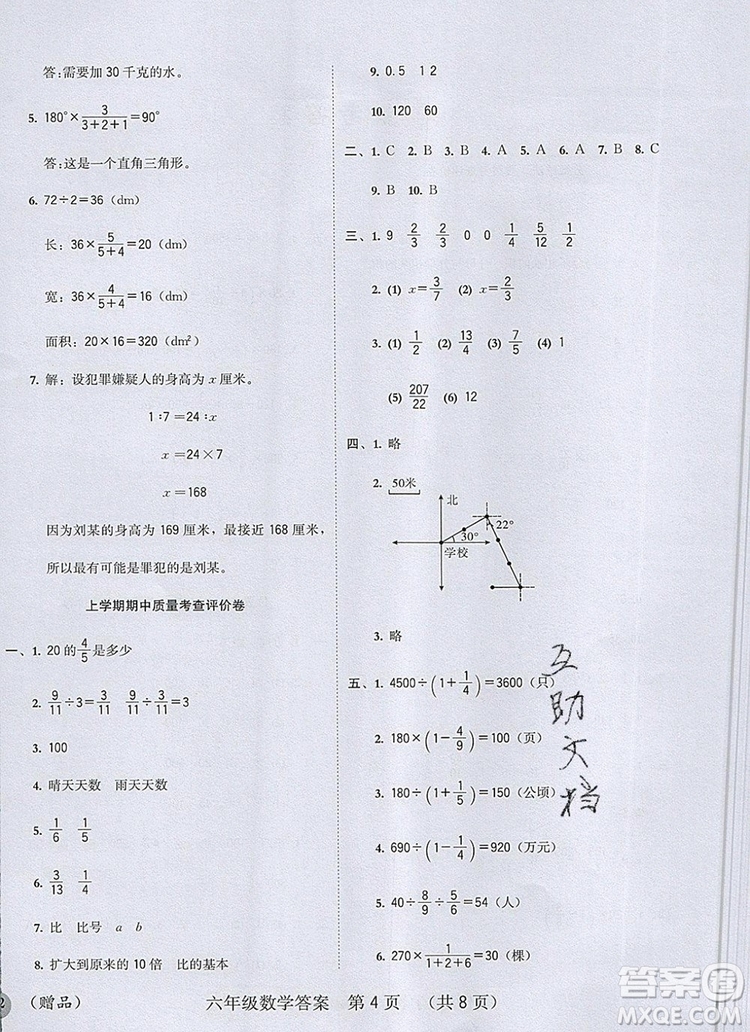 答:需要加 30 千克的水。
5. 180°×3/(3+2+1)=90°
答:这是一个直角三角形。
6. 72÷2=36(dm)
长:36×5/(5+4)=20(dm)
宽:36×4/(5+4)=16(dm)
面积:20×16=320(dm²)
7. 解:设犯罪嫌疑人的身高为 x 厘米。
1∶7=24∶x
x=24×7
x=168
因为刘某的身高为 169 厘米，最接近 168 厘米，
所以最有可能是罪犯的是刘某。
上学期期中质量考查评价卷
一、1. 20 的4/5是多少
2. 9/11÷3=3/11 9/11÷3/11=3
3. 100
4. 晴天天数 雨天天数
5. 1/6 1/5
6. 3/13 1/4
7. 比 比号 a b
8. 扩大到原来的 10 倍 比的基本
9. 0.5 1 2
10. 120 60
二、1. C 2. B 3. B 4. C 5. B 6. A 7. B 8. C
9. B 10. B
三、1. 9 2/3 2/3 0 0 1/4 5/12 1/2
2. (1) x=3/7 (2) x=2/3
3. (1) 1/2 (2) 13/4 (3) 7/5 (4) 1
(5) 207/22 (6) 12
四、1. 略
2. 50米
北
22°
30°
学校
3. 略
五、1. 4500÷(1+1/4)=3600(只)
2. 180×(1-4/9)=100(页)
3. 180÷(1+1/5)=150(公顷)
4. 690÷(1-1/4)=920(万元)
5. 40÷8/9÷5/6=54(人)
6. 270×1/(1+2+6)=30(棵)
互助文档
2
(赠品) 六年级数学答案 第 4 页 (共 8 页)
答案圈
MXQE.COM